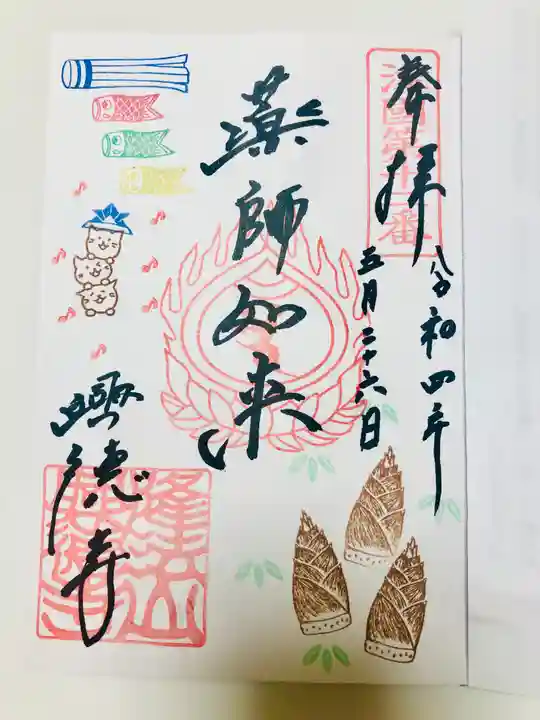 奉拝
令和四年
五月二十六日
薬師如来
興徳寺